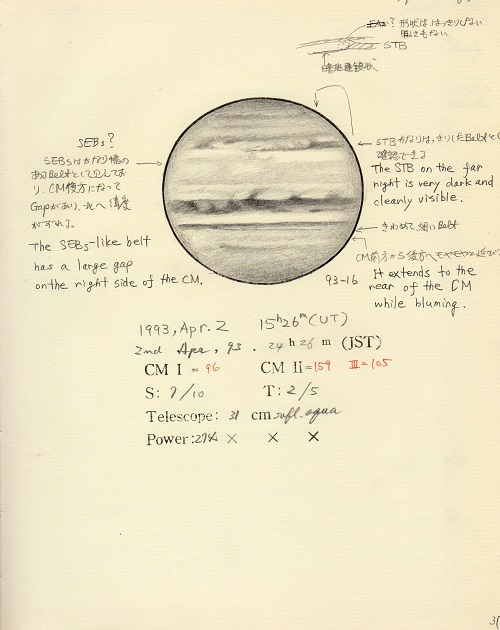 形状ははっきりしない
明るさもない
STB
暗斑連鎖状
SEBs?
SEBsはかなり幅の
あるBeltとして見えてお
り、CM後方になって
Gapがあり、北へ緯度
がずれる。
The SEBs-like belt
has a large gap
on the right side of the CM.
STBかなりはっきりしたBeltとし
確認できる
The STB on the far
right is very dark and
cleanly visible.
きわめて細いBelt
CM前方からS後方へモヤモヤと延び
It extends to the
rear of the CM
while bluming.
93-16
1993, Apr. 2 15h26m (UT)
2nd Apr, 93. 24 h 26 m (JST)
CM I = 96 CM II = 159 III = 105
S: 7/10 T: 2/5
Telescope: 31 cm refl. equa
Power: 274 × × ×